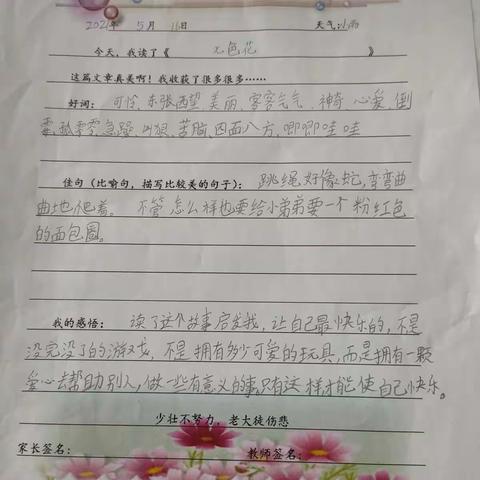 2021年 5月 16日 天气:小雨
今天,我读了《 七色花 》
这篇文章真美啊!我收获了很多很多……
好词: 可怜、东张西望、美丽、客客气气、神奇、心爱、倒
霉、孤零零、急躁、叫狠、苦脑、四面八方、唧唧哇哇
佳句(比喻句,描写比较美的句子): 跳绳好像蛇,弯弯曲
曲地爬着。 不管怎么样也要给小弟弟要一个粉红色
的面包圈。
我的感悟: 读了这个故事启发我,让自己最快乐的,不是
没完没了的游戏,不是拥有多少可爱的玩具,而是拥有一颗
爱心去帮助别人,做一些有意义的事,只有这样才能使自己快乐。
少壮不努力,老大徒伤悲
家长签名: 教师签名: